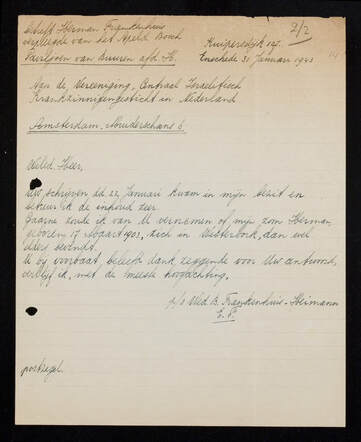 Betreft Herman Frankenhuis
verpleegde van het Apeld. Bosch
Paviljoen van Buuren afd. H.
2/2
Kuipersdijk 127.
Enschede 31 Januari 1943
Aan de Vereeniging, Centraal Israelitisch
Krankzinnigengesticht in Nederland
Amsterdam, Nw.
WelEd. Heer,
Uw schrijven dd 22 Januari kwam in mijn bezit en
betreur ik de inhoud zeer.
Gaarne zoude ik van U vernemen of mijn zoon Herman,
geboren 17 Maart 1903, zich in Westerbork, dan wel
elders bevindt.
U bij voorbaat, beleefd dank zeggende voor Uw antwoord,
verblijf ik, met de meeste hoogachting.
Wed. B. Frankenhuis-Heimann
postzegel.